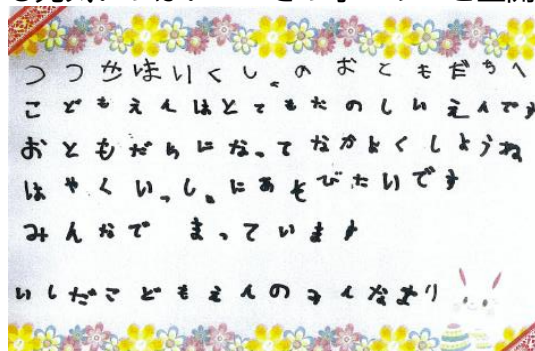 つつみほいくしょのおともだちへ
こどもえんはとてもたのしいえんです
おともだちになってなかよくしようね
はやくいっしょにあそびたいです
みんなで まっています
いしだこどもえんのみんなより